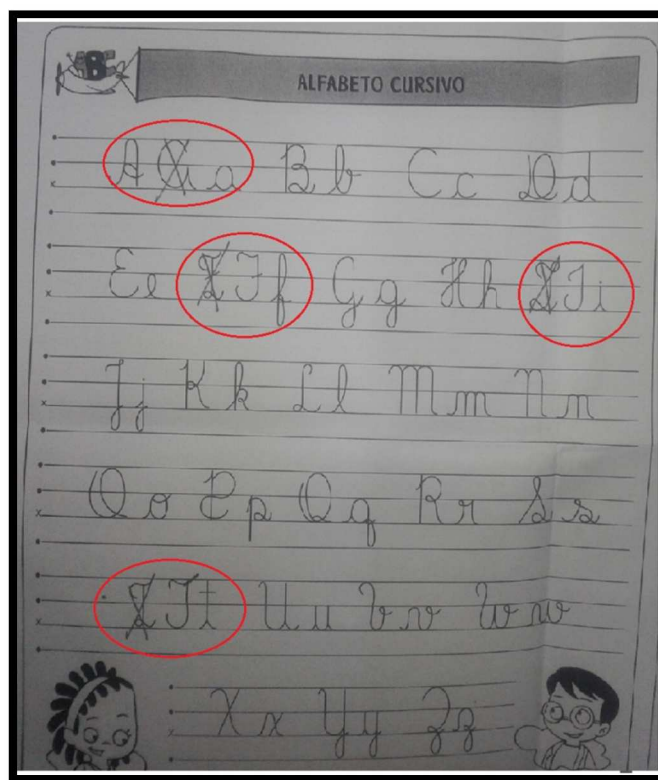 B
ALFABETO CURSIVO
A a B b C c D d
E e F f G g H h I i
J j K k L l M m N n
O o P p Q q R r S s
T t U u V v W w
X x Y y Z z